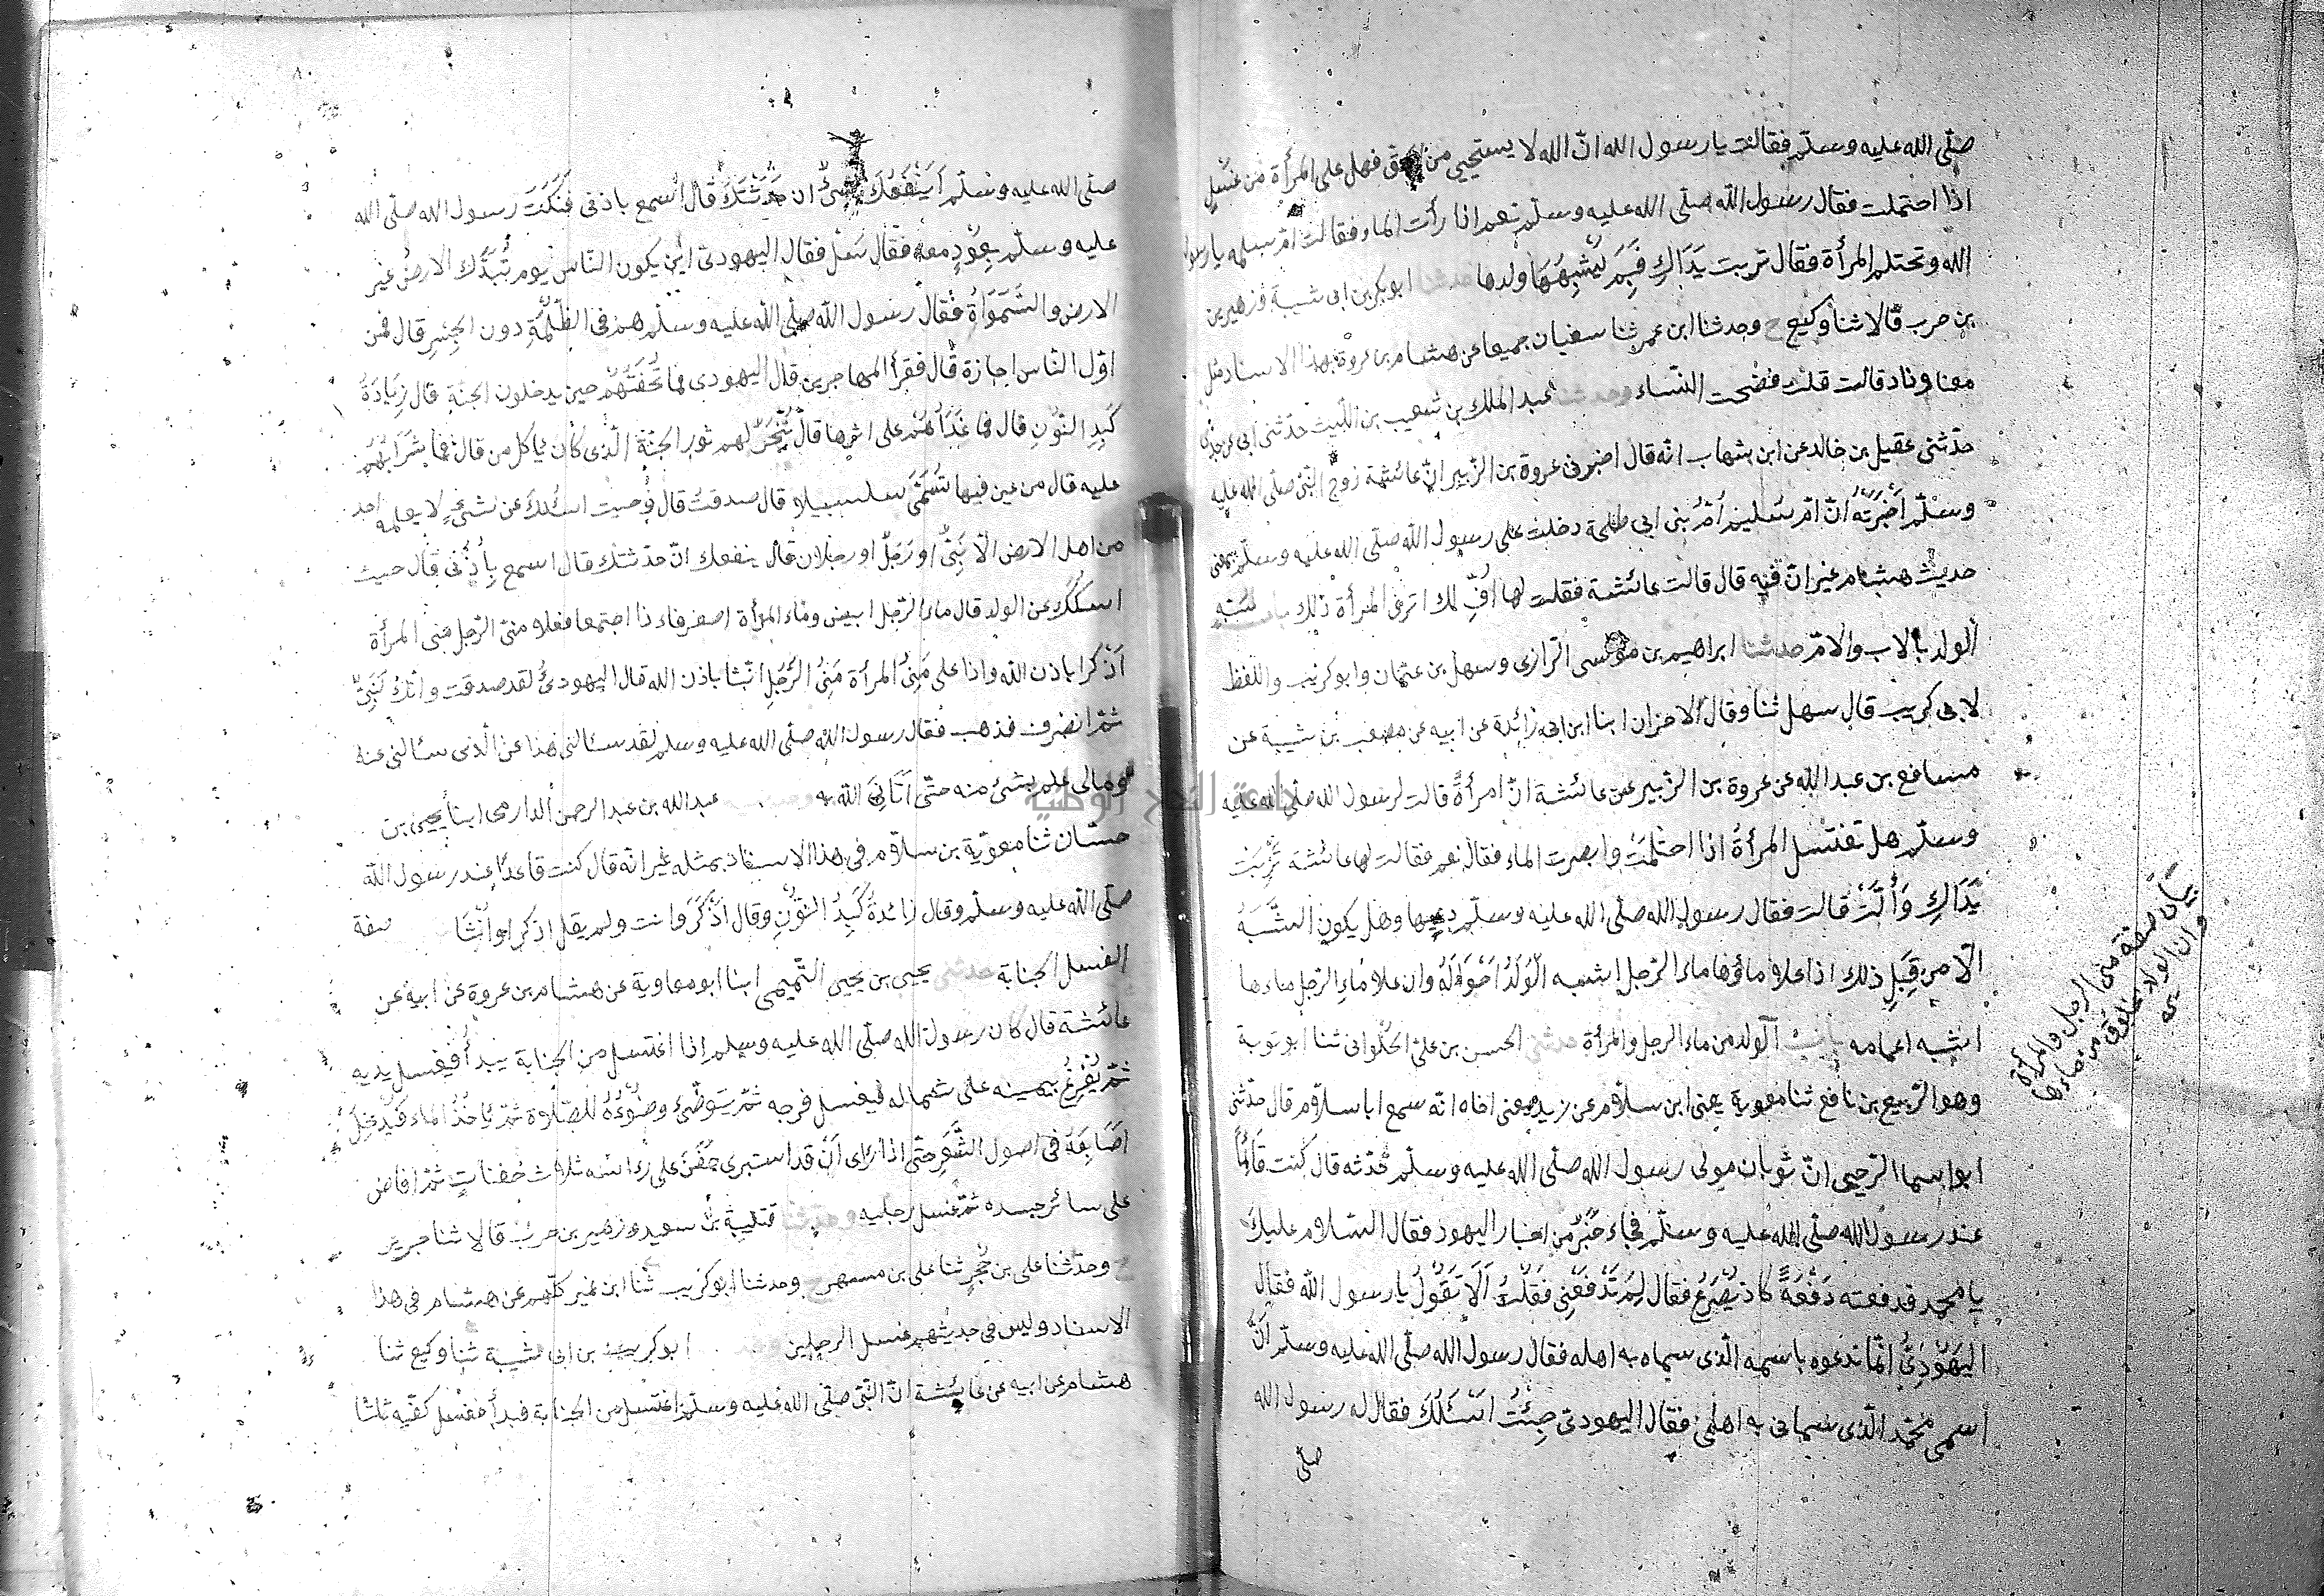 صلّى الله عليه وسلّم فقالت يا رسول الله انّ الله لا يستحيي من الحق فهل على المرأة من غسل
اذا احتملت فقال رسول الله صلّى الله عليه وسلّم نعم اذا رأت الماء فقالت ام سلمه يا رسول
الله وتحتلم المرأة فقال تربت يَدَاكِ فَبِمَ يُشْبِهُهَا ولدها حدثنا ابوبكر بن ابى شيبة وزهير بن
بن حرب قالا ثنا وكيع ح وحدثنا ابن عمر ثنا سفيان جميعا عن هشام بن عروة بهذا الاسناد مثل
معناه وزاد قالت قلت فضحت النّساء وحدثنا عبد الملك بن شعيب بن اللّيث حدّثنى ابى عن جدّى
حدّثنى عقيل بن خالد عن ابن شهاب انّه قال اخبرنى عروة بن الزّبير انّ عائشة زوج النّبى صلّى الله عليه
وسلّم أَخْبَرَتْهُ انّ امّ سُليم اُمّ بنى ابى طلحة دخلت على رسول الله صلّى الله عليه وسلّم بمعنى
حديث هشام غير انّ فيه قال قالت عائشة فقلت لها اُفٍّ لك اترى المرأة ذلك باب شبه
الولد بالاب والامّ حدثنا ابراهيم بن موسى الرازى وسهل بن عثمان وابو كريب واللفظ
لابى كريب قال سهل ثنا وقال الاخران ابنا ابن ابى زائدة عن ابيه عن مصعب بن شيبة عن
مسافع بن عبد الله عن عروة بن الزبير عن عائشة انّ امرأةً قالت لرسول الله صلّى الله عليه
وسلّم هل تغتسل المرأة اذا احتلمَتْ وابصرت الماء فقال نعم فقالت لها عائشة تَرِبَتْ
يَدَاكِ وَأُلَّتْ قالت فقال رسول الله صلّى الله عليه وسلّم دعيها وهل يكون الشَّبَهُ
الّا من قِبَلِ ذلك اذا علا ماؤها ماء الرّجل اشبه الْوَلَدُ اَخْوَالَهُ وان علا ماء الرّجل ماءها
اشبه اعمامه باب الولد من ماء الرجل والمرأة حدثنى الحسن بن علىّ الحلوانى ثنا ابو توبة
وهو الرّبيع بن نافع ثنا معوية يعنى ابن سلّام عن زيد يعنى اخاه انّه سمع ابا سلّام قال حدّثنى
ابو اسما الرّحبى انّ ثوبان مولى رسول الله صلّى الله عليه وسلّم حَدّثه قال كنت قائمًا
عند رسول الله صلّى الله عليه وسلّم فجاء حَبْرٌ من احبار اليهود فقال السّلام عليك
يا محمد فدفعته دَفْعَةً كاد يُصْرَعُ فقال لِمَ تَدْفَعُنِى فَقُلْتُ اَلَا تَقُوْلُ يا رسول الله فقال
الْيَهُوْدِىُّ انّما ندعوه باسمه الّذى سماه به اهله فقال رسول الله صلّى الله عليه وسلّم انّ
اسمى محمّد الّذى سمانى به اهلى فقال اليهودىّ جِئْتُ اَسْئَلُكَ فقال له رسول الله
صلّى
بيان صفة منى الرجل والمرأة
وان الولد مخلوق من ماءها
صلّى الله عليه وسلّم اَيَنْفَعُكَ شئٌ ان حَدَّثْتُكَ قال اسمع باذنى فَنَكَتَ رسول الله صلّى الله
عليه وسلّم بِعُوْدٍ معه فقال سَلْ فقال اليهودىّ اين يكون النّاس يوم تُبَدَّلُ الارضُ غير
الارض والسَّمَوَاتُ فقال رسول الله صلّى الله عليه وسلّم هم فى الظُّلْمَةِ دون الجِسْرِ قال فمن
اوّل النّاس اجازة قال فقرأ المهاجرين قال اليهودى فما تُحْفَتُهُمْ حين يدخلون الجنّة قال زِيَادَةُ
كَبِدِ النُّوْنِ قال فما غَدَاؤُهُمْ على اثرها قال يُنْحَرُ لهم ثور الجنّة الّذى كان ياكل من قال فما شَرَابُهُمْ
عليه قال من عين فيها تُسَمَّى سلسبيلا قال صدقت قال وجيت اسئلك عن شئٍ لا يعلمه احد
من اهل الارض الّا نَبِىٌّ او رَجُلٌ او رجلان قال ينفعك انّ حدّثتك قال اسمع بِأُذُنى قال جيت
اسئلك عن الولد قال ماء الرّجل ابيض وماء المرأة اصفر فاءذا اجتمعا فعلا منىّ الرّجل منى المرأة
أَذْكَرا باذن الله واذا على مَنِىُّ المرأة مَنِىَّ الرَّجُلِ أنّثا باذن الله قال اليهودىُّ لقد صدقت وانّك لَنَبِىٌّ
ثمّ انصرف فذهب فقال رسول الله صلّى الله عليه وسلم لقد سئالنى هذا عن الّذى سئالنى عنه
ومالى علم بشئ منه حتّى أَتَانِىَ الله به وحدثنيه عبد الله بن عبد الرحمن الدارمى ابنا يحيى بن
حسّان ثنا معوية بن سلّام فى هذا الاسناد بمثله غير انّه قال كنت قاعدًا عند رسول الله
صلّى الله عليه وسلّم وقال زائدةُ كَبِدُ النُّوْنِ وقال اَذْكَرَ وانث ولم يقل اذكرا وَأَنْثَا صفة
الغسل الجنابة حدثنى يحيى بن يحيى التّميمى ابنا ابو معاوية عن هشام بن عروة عن ابيه عن
عائشة قال كان رسول الله صلّى الله عليه وسلم اذا اغتسل من الجنابة يبدأ فيغسل يديه
ثمّ يُفْرِغُ بيمينه على شماله فيغسل فرجه ثمّ يتوضّئ وضُوْءَهُ للصّلاة ثمّ يأخُذُ الماء فَيُدْخِلُ
اَصَابِعَهُ فى اصول الشَّعَرِ حتّى اذا رَاى اَنْ قد استبرى حَفَنَ على راسه ثلاث حَفنات ثمّ افاض
على سائر جسده ثمّ غسل رجليه وحدّثنا قتيبة بن سعيد وزهير بن حرب قالا ثنا جرير
ح وحدّثنا على بن حُجْرٍ ثنا على بن مسهر ح وحدثنا ابو كريب ثنا ابن نمير كلّهم عن هشام فى هذا
الاسناد وليس فى حديثهم غسل الرجلين ابو كريب بن ابى شيبة ثنا وكيع ثنا
هشام عن ابيه عن عائشة انّ النّبىّ صلّى الله عليه وسلّم اغتسل من الجنابة فبدأ فغسل كفّيه ثلثا
جامعة النجاح الوطنية